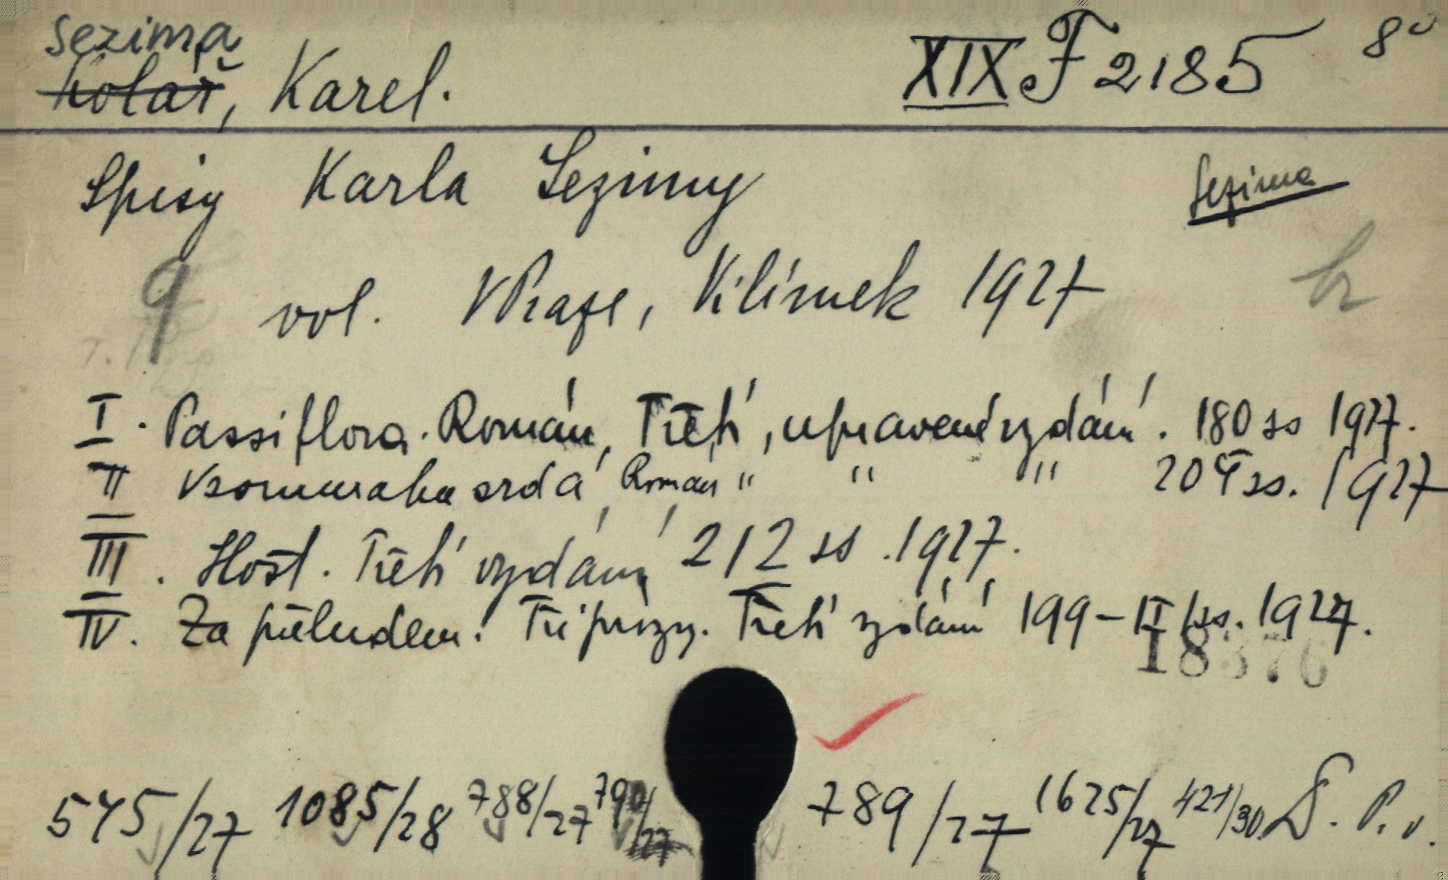 Sezima
Kolář, Karel.
XIX F 2185 8°
Spisy Karla Sezimy
Sezima
9 vol. V Praze, Vilímek 1927
I. Passiflora. Román, Třetí, upravené vydání. 180 ss 1927.
II V soumraku srdcí, Román " " " 204 ss. 1927
III. Host. Třetí vydání 212 ss. 1927.
IV. Za přeludem. Tři prózy. Třetí vydání 199-II ss. 1927.
18376
545/27 1085/28 788/27 790/27 789/27 1625/27 421/30 D. P. v.